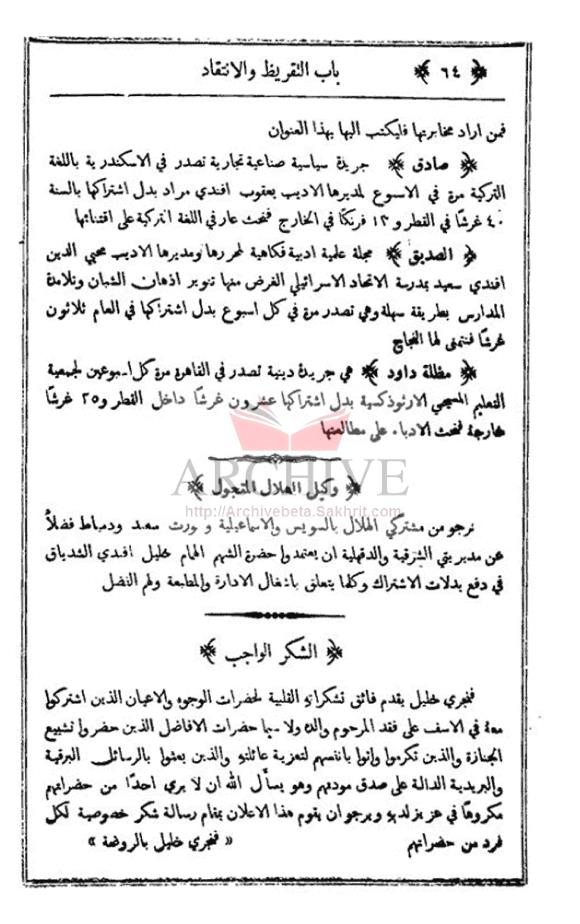 ﴿ ٦٤ ﴾ باب التقريظ والانتقاد
فمن اراد مخابرتها فليكتب اليها بهذا العنوان
﴿ صادق ﴾ جريدة سياسية صناعية تجارية تصدر في الاسكندرية باللغة
التركية مرة في الاسبوع لمديرها الاديب يعقوب افندي مراد بدل اشتراكها بالسنة
٤٠ غرشًا في القطر و١٣ فرنكًا في الخارج فنحث عارفي اللغة التركية على اقتنائها
﴿ الصديق ﴾ مجلة علمية ادبية فكاهية لمحررها ومديرها الاديب محيي الدين
افندي سعيد بمدرسة الاتحاد الاسرائيلي الغرض منها تنوير اذهان الشبان وتلامذة
المدارس بطريقة سهلة وهي تصدر مرة في كل اسبوع بدل اشتراكها في العام ثلاثون
غرشًا فنتمنى لها النجاح
﴿ مظلة داود ﴾ هي جريدة دينية تصدر في القاهرة مرة كل اسبوعين لجمعية
التعليم المسيحي الارثوذكسية بدل اشتراكها عشرون غرشًا داخل القطر و٢٥ غرشًا
خارجة فنحث الادباء على مطالعتها
ARCHIVE
﴿ وكيل الهلال المتجول ﴾
http://Archivebeta.Sakhrit.com
نرجو من مشتركي الهلال بالسويس والاسماعيلية وبورت سعيد ودمياط فضلاً
عن مديريتي الشرقية والدقهلية ان يعتمدوا حضرة الشهم الهمام خليل افندي الشدياق
في دفع بدلات الاشتراك وكلما يتعلق باشغال الادارة والمطبعة ولهم الفضل
﴿ الشكر الواجب ﴾
فنجري خليل يقدم فائق تشكراته القلبية لحضرات الوجوه والاعيان الذين اشتركوا
معهُ في الاسف على فقد المرحوم والده ولا سيما حضرات الافاضل الذين حضروا تشييع
الجنازة والذين تكرموا واتوا بانفسهم لتعزية عائلته والذين بعثوا بالرسائل البرقية
والبريدية الدالة على صدق مودتهم وهو يسأل الله ان لا يري احدًا من حضراتهم
مكروهًا في عزيز لديه ويرجو ان يقوم هذا الاعلان بمقام رسالة شكر خصوصية لكل
فرد من حضراتهم « فنجري خليل بالروضة »